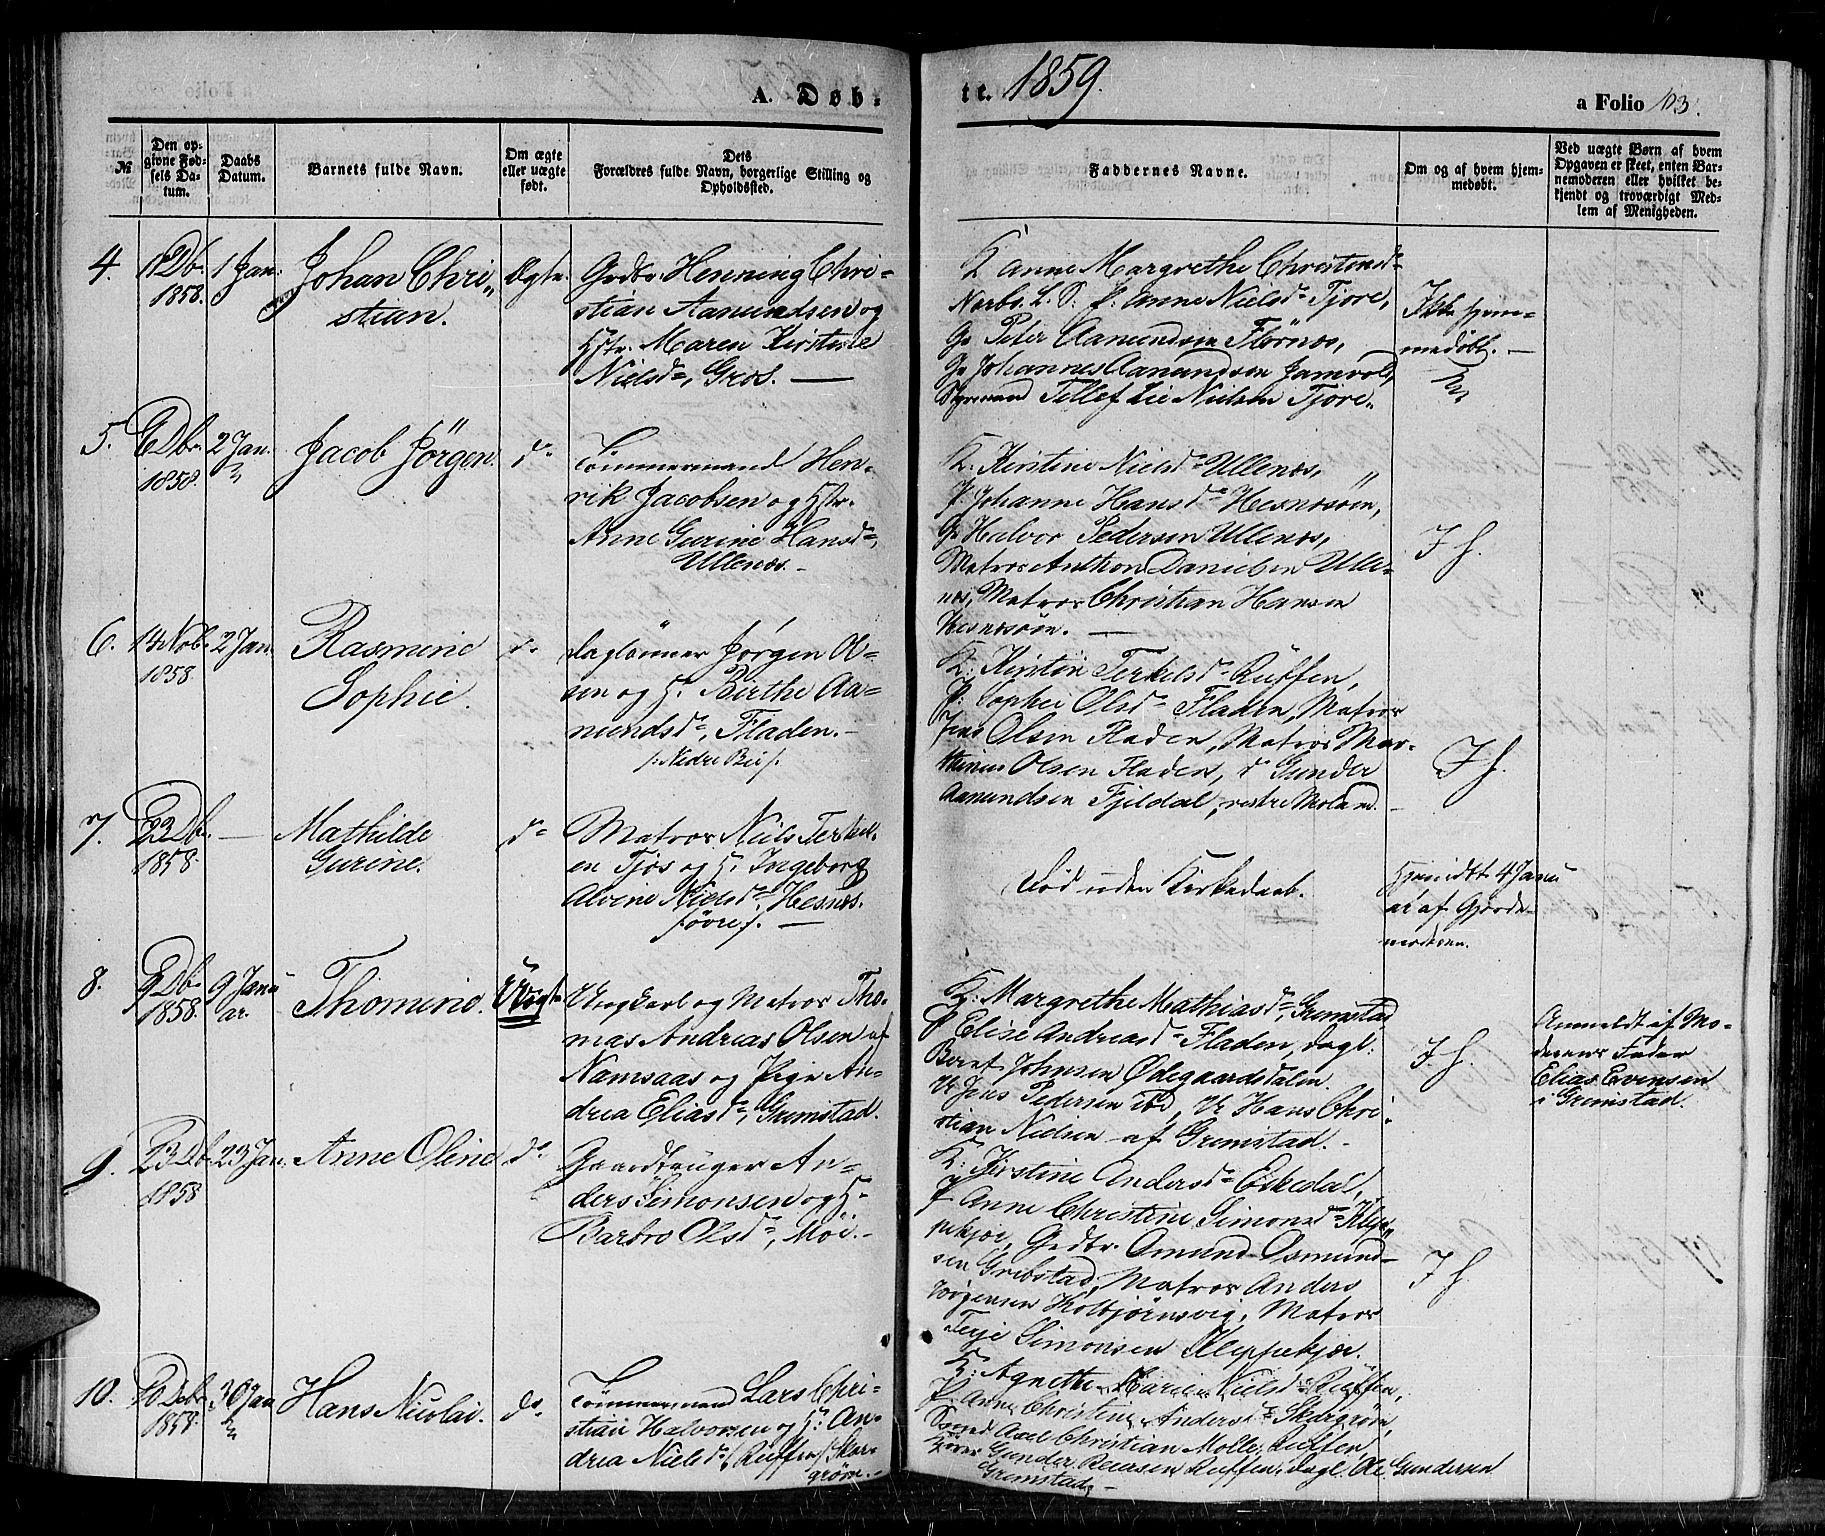 A. Døb-
te. 1859.
a Folio 103.
№
Den op-
givne Fød-
sels Da-
tum.
Daabs
Datum.
Barnets fulde Navn.
Om ægte
eller uægte
født.
Dets
Forældres fulde Navn, borgerlige Stilling og
Opholdssted.
Faddernes Navne.
Om og af hvem hjem-
medøbt.
Ved uægte Børn af hvem
Opgaven er skeet, enten Bar-
nemoderen eller hvilket be-
kjendt og troværdigt Med-
lem af Menigheden.
4.
Db.
1858.
1 Jan.
Johan Chri-
stian.
Ægte.
Grdbr. Henning Chri-
stian Aamundsen og
Hstr. Maren Kirstine
Nielsd., Gros. —
K. Anne Margrethe Christensd.
L. S. P. Anne Nielsd. Tjore,
G. Peter Aamundsen
G. Johannes Aamundsen Jamvold,
Styrmand Tellef Lie Nielsen Tjore.
Ikke hjem-
medøbt. —
5.
6 Dbr.
1858.
2 Jan.
Jacob Jörgen.
do
Tömmermand Hen-
rik Jacobsen og Hstr.
Anne Gurine Hansd.,
Ullenæs. -
K. Kirstine Nielsd. Ullenæs,
P. Johanne Hansd. Hesnæsøen,
G. Halvor Pedersen Ullenæs,
Matros Anthon Danielsen Ulle-
næs, Matros Christian Hansen
Hesnæsøen. —
I h.
6.
14 Novb.
1858.
2 Jan.
Rasmine
Sophie.
do
Daglönner Jørgen Ol-
sen og H. Birthe Aa-
mundsd., Fladen. -
/: Nedre Bie :/
K. Kirstin Terkelsd. Rüffen,
P. Sophie Olsd. Fladen, Matros
Jens Olsen Fladen, Matros Mar-
thinus Olsen Fladen, do Gunder
Aanundsen Fjeldal, vestre Moland.
I h.
7.
23 Db.
1858.
—
Mathilde
Gurine.
do
Matros Niels Terkel-
sen Tjos og H. Ingeborg
Alvine Nielsd., Hesnæs.
/øvre/. —
Død uden Kirkedaab.
Hjemdbt 4 Janu
ar af Gjorde-
moderen.
8.
9 Db.
1858.
9 Janu
ar.
Thomine.
Uægte
Ungkarl og Matros Tho-
mas Andreas Olsen af
Namsaas og Pige An-
drea Eliasd., Grimstad.
K. Margrethe Mathiasd., Grimstad
P. Elise Andreasd. Fladen, Dagl.
Bernt Johnsen Ødegaardsdalen.
U. Jens Pedersen ibd, U. Hans Chri-
stian Nielsen af Grimstad. -
I. h.
Anmeldt af Mo-
derens Fader
Elias Evensen
i Grimstad.
9.
23 Db.
1858
23 Jan.
Anne Oline
do
Gaardbruger An-
ders Simonsen og H.
Barbro Olsd., Moi. -
K. Kirstine Andersd. Eskedal,
P. Anne Christine Simonsd. Klep-
pekjær, Grdbr. Omund Osmund-
sen Gribstad, Matros Anders
Jørgensen Kolbjørnsvig, Matros
Terje Simonsen Kleppekjær.
I h.
10.
Decbr.
1858.
30 Jan.
Hans Nicolai.
do.
Tömmermand Lars Chri-
stian Halvorsen og H. An-
drea Nielsd. (Rüffen) Skar-
grøn. -
K. Agnethe Marie Nielsd. Rüffen,
P. Anne Christine Andersd. Skargrøn,
Axel Christian Molle, Rüffen,
Gunder Berntsen Rüffen, Dagl. Ole Gundersen
Grimstad. -